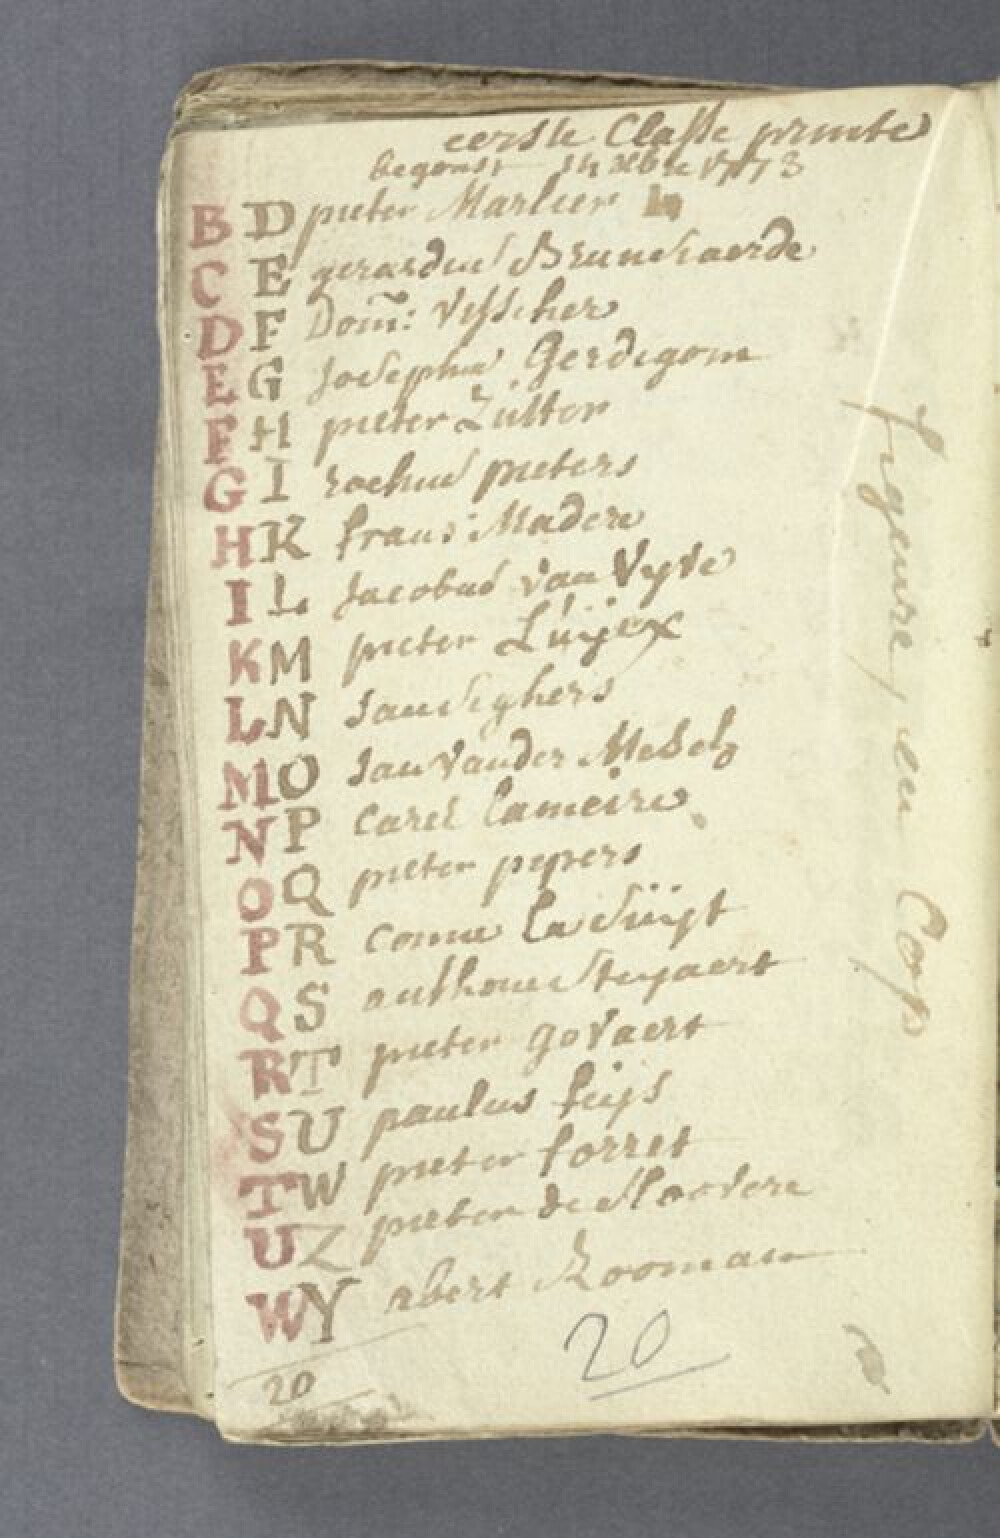 eerste Classe printe
begonst 14 xbre 1773
B D pieter Marlier
C E gerardus Brunehaerde
D F Dom: Visscher
E G Josephus Gerdegom
F H pieter Zutter
G I rochus pieters
H K frans Madere
I L Jacobus van Vyve
K M pieter Luijcx
L N Jan Seghers
M O Jan Vander
N P Carel Lameire
O Q pieter pepers
P R
Q S anthone Steyaert
R T pieter goVaert
S U paulus
T W pieter forret
U Z pieter de Sloovere
W Y abert Rooman
20
20
figeure, en Corps